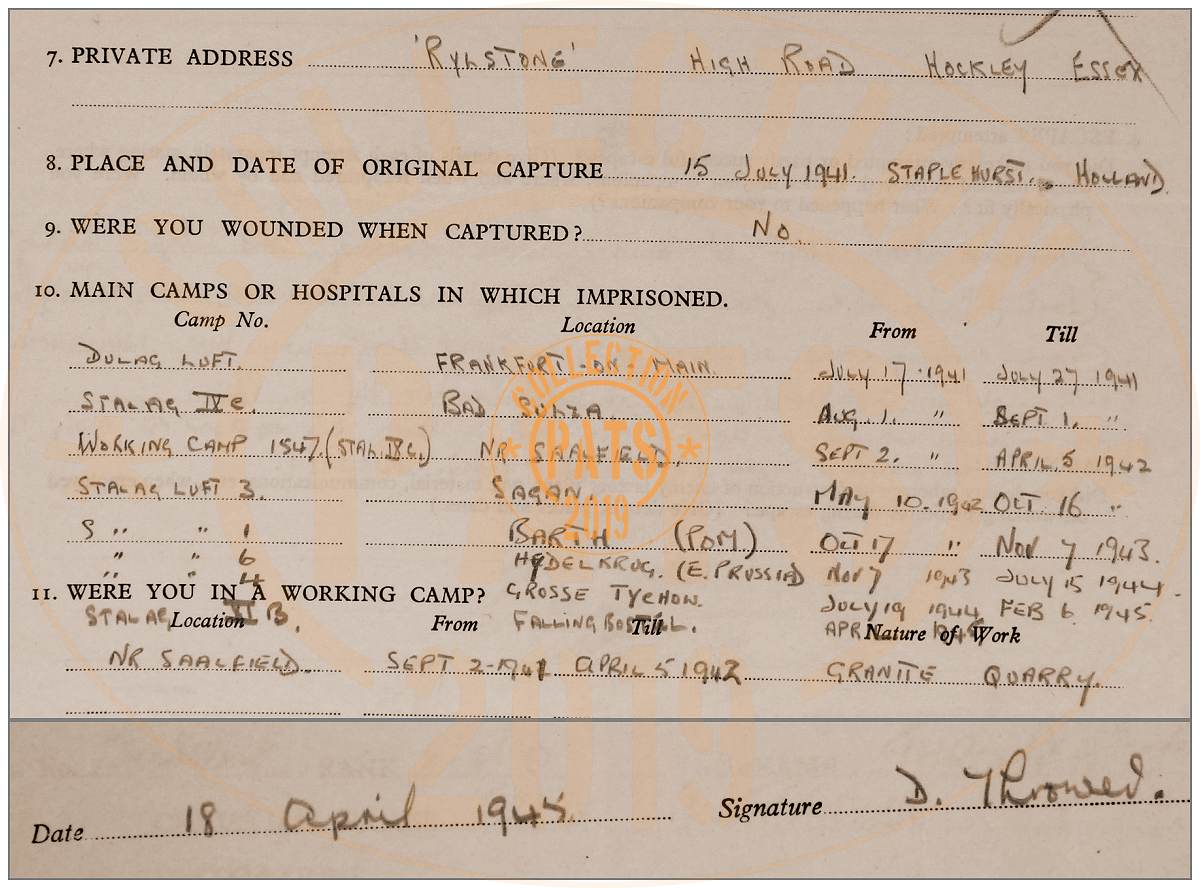 7. PRIVATE ADDRESS 'RYLSTONE' HIGH ROAD HOCKLEY ESSEX
8. PLACE AND DATE OF ORIGINAL CAPTURE 15 JULY 1941. STAPLEHURST, HOLLAND
9. WERE YOU WOUNDED WHEN CAPTURED? No.
10. MAIN CAMPS OR HOSPITALS IN WHICH IMPRISONED.
Camp No. Location From Till
DULAG LUFT. FRANKFURT-ON-MAIN. JULY 17 1941 JULY 27 1941
STALAG IXC. BAD SULZA AUG. 1. " SEPT 1. "
WORKING CAMP 1547. (STAL. IXC.) NR SAALFIELD. SEPT 2. " APRIL 5 1942
STALAG LUFT 3. SAGAN. MAY 10. 1942 OCT 16 "
S " " 1 BARTH (POM) OCT 17 " NOV 7 1943.
" " 6 HYDELKRUG. (E. PRUSSIA) NOV 7 1943 JULY 15 1944.
" " 4 GROSSE TYCHOW. JULY 19 1944 FEB 6 1945.
11. WERE YOU IN A WORKING CAMP?
STALAG XI B. FALLINGBOSTELL. APR 1945
Location From Till Nature of Work
NR SAALFIELD. SEPT 2-1941 APRIL 5 1942 GRANITE QUARRY.
Date 18 April 1945. Signature D. Throwed.
COLLECTION
PATS
2019